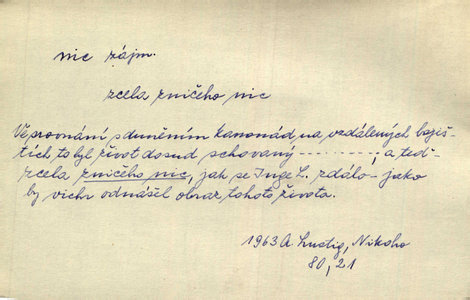 nic zájm.
zcela zničeho nic
Ve srovnání s duněním kanonád na vzdálených bojiš-
tích, to byl život dosud schovaný ----------, a teď-
zcela zničeho nic, jak se Inge L. zdálo - jako
by vichr odnášel obraz tohoto života.
1963 A. Lustig, Nikoho
80, 21